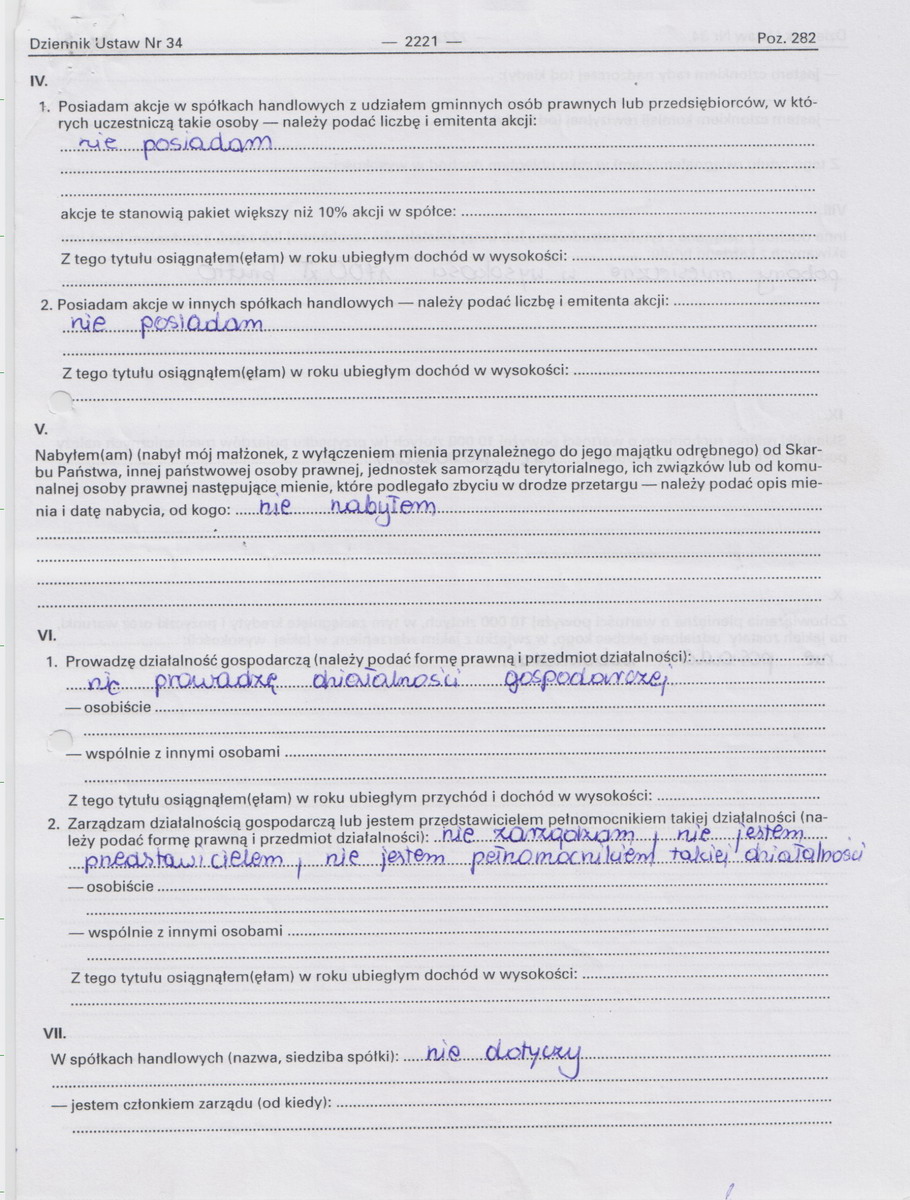 Dziennik Ustaw Nr 34 — 2221 — Poz. 282
IV.
1. Posiadam akcje w spółkach handlowych z udziałem gminnych osób prawnych lub przedsiębiorców, w któ-
rych uczestniczą takie osoby — należy podać liczbę i emitenta akcji:
nie posiadam
akcje te stanowią pakiet większy niż 10% akcji w spółce:
Z tego tytułu osiągnąłem(ęłam) w roku ubiegłym dochód w wysokości:
2. Posiadam akcje w innych spółkach handlowych — należy podać liczbę i emitenta akcji:
nie posiadam
Z tego tytułu osiągnąłem(ęłam) w roku ubiegłym dochód w wysokości:
V.
Nabyłem(am) (nabył mój małżonek, z wyłączeniem mienia przynależnego do jego majątku odrębnego) od Skar-
bu Państwa, innej państwowej osoby prawnej, jednostek samorządu terytorialnego, ich związków lub od komu-
nalnej osoby prawnej następujące mienie, które podlegało zbyciu w drodze przetargu — należy podać opis mie-
nia i datę nabycia, od kogo: nie nabyłem
VI.
1. Prowadzę działalność gospodarczą (należy podać formę prawną i przedmiot działalności):
nie prowadzę działalności gospodarczej
— osobiście
— wspólnie z innymi osobami
Z tego tytułu osiągnąłem(ęłam) w roku ubiegłym przychód i dochód w wysokości:
2. Zarządzam działalnością gospodarczą lub jestem przedstawicielem pełnomocnikiem takiej działalności (na-
leży podać formę prawną i przedmiot działalności): nie zarządzam, nie jestem
przedstawicielem, nie jestem pełnomocnikiem takiej działalności
— osobiście
— wspólnie z innymi osobami
Z tego tytułu osiągnąłem(ęłam) w roku ubiegłym dochód w wysokości:
VII.
W spółkach handlowych (nazwa, siedziba spółki): nie dotyczy
— jestem członkiem zarządu (od kiedy):